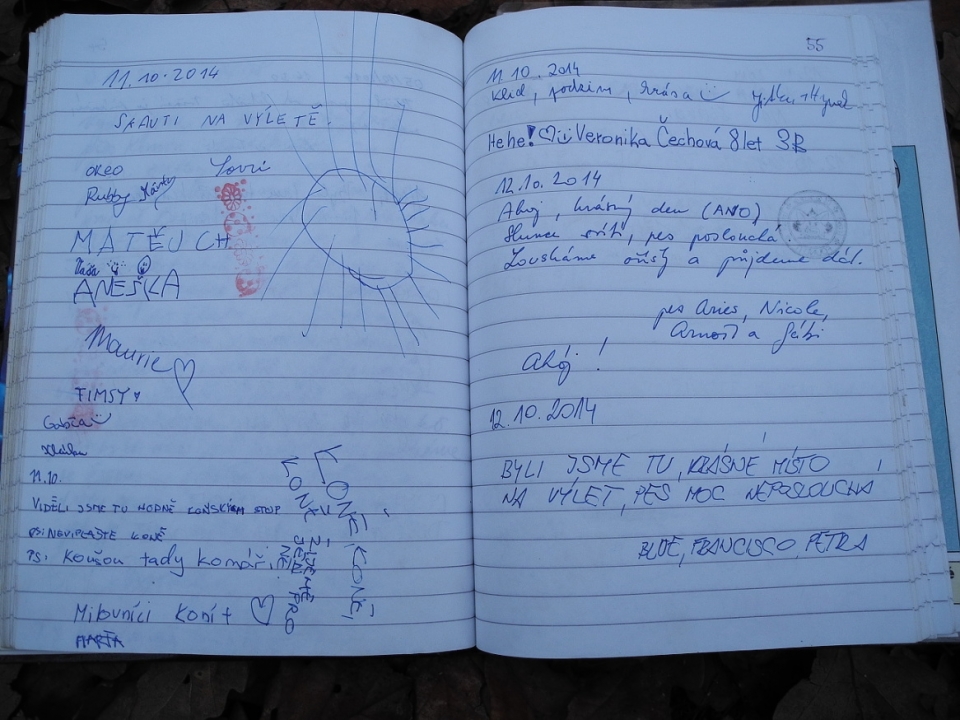 11.10.2014
SKAUTI NA VÝLETĚ.
OREO
Rubby
MATĚJ
ANEŠKA
Maurie
TIMSY
Gábča
11.10.
VIDĚLI JSME TU HODNĚ KOŇSKÝCH STOP
PS: NEVIPLAŠTE KONĚ
PS: Koušou tady komáři.
Milovníci koní +
MARŤA
KONĚ, KONĚ,
KONĚ
ŽIJEME PRO
JEN
NĚ
55
11.10.2014
Klid, podzim, krása
Hehe! Veronika Čechová 8 let 3B
12.10.2014
Ahoj, krásný den (ANO)
Slunce svítí, pes poslouchá.
Louskáme oříšky a půjdeme dál.
pes Aries, Nicole,
Arnošt a Gábi
Ahoj!
12.10.2014
BYLI JSME TU, KRÁSNÉ MÍSTO
NA VÝLET, PES MOC NEPOSLOUCHÁ
BLUE, FRANCISCO, PETRA